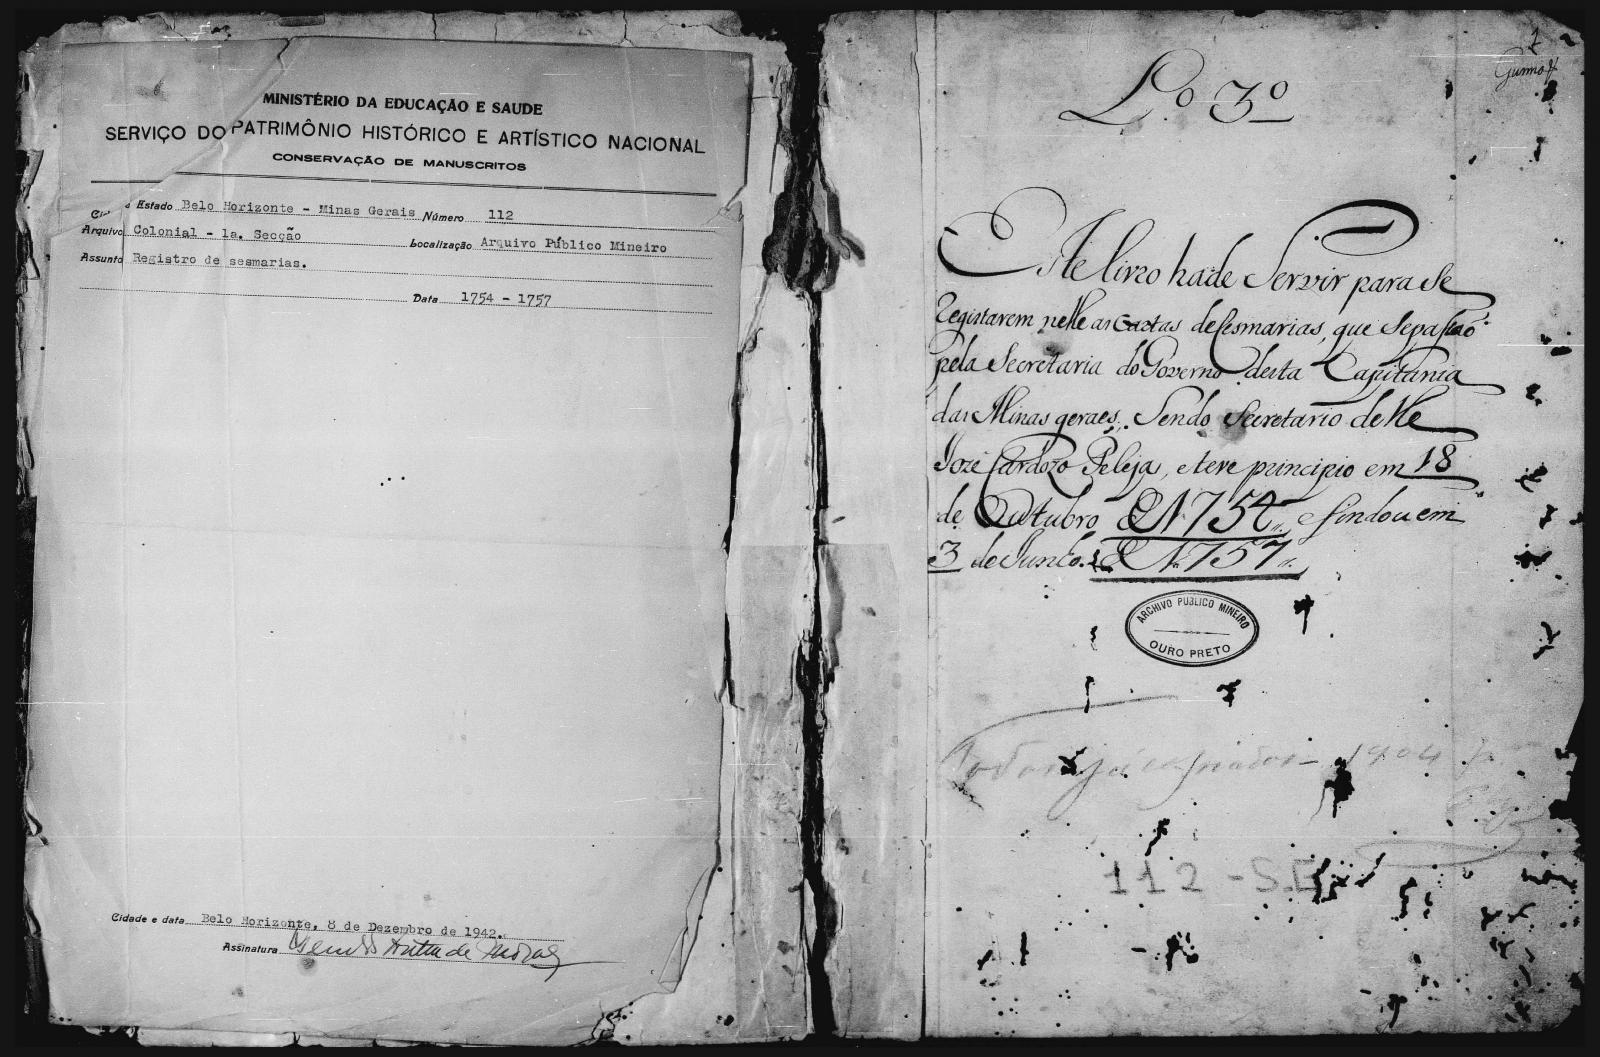 MINISTÉRIO DA EDUCAÇÃO E SAUDE
SERVIÇO DO PATRIMÔNIO HISTÓRICO E ARTÍSTICO NACIONAL
CONSERVAÇÃO DE MANUSCRITOS
Estado Belo Horizonte - Minas Gerais Número 112
Arquivo Colonial - 1a. Secção Localização Arquivo Público Mineiro
Assunto Registro de sesmarias.
Data 1754 - 1757
Cidade e data Belo Horizonte, 8 de Dezembro de 1942.
Assinatura
1
L.º 3º
Este livro hade Servir para se
Registarem nelle as Cartas de Sesmarias, que Sepassaõ
pela Secretaria do Governo desta Capitania
das Minas geraes, Sendo Secretario delle
Jozé Cardozo Peleja, eteve principio em 18
de Outubro 1754 e findou em
3 de Junho 1757
ARCHIVO PUBLICO MINEIRO
OURO PRETO
1904
112 - S.